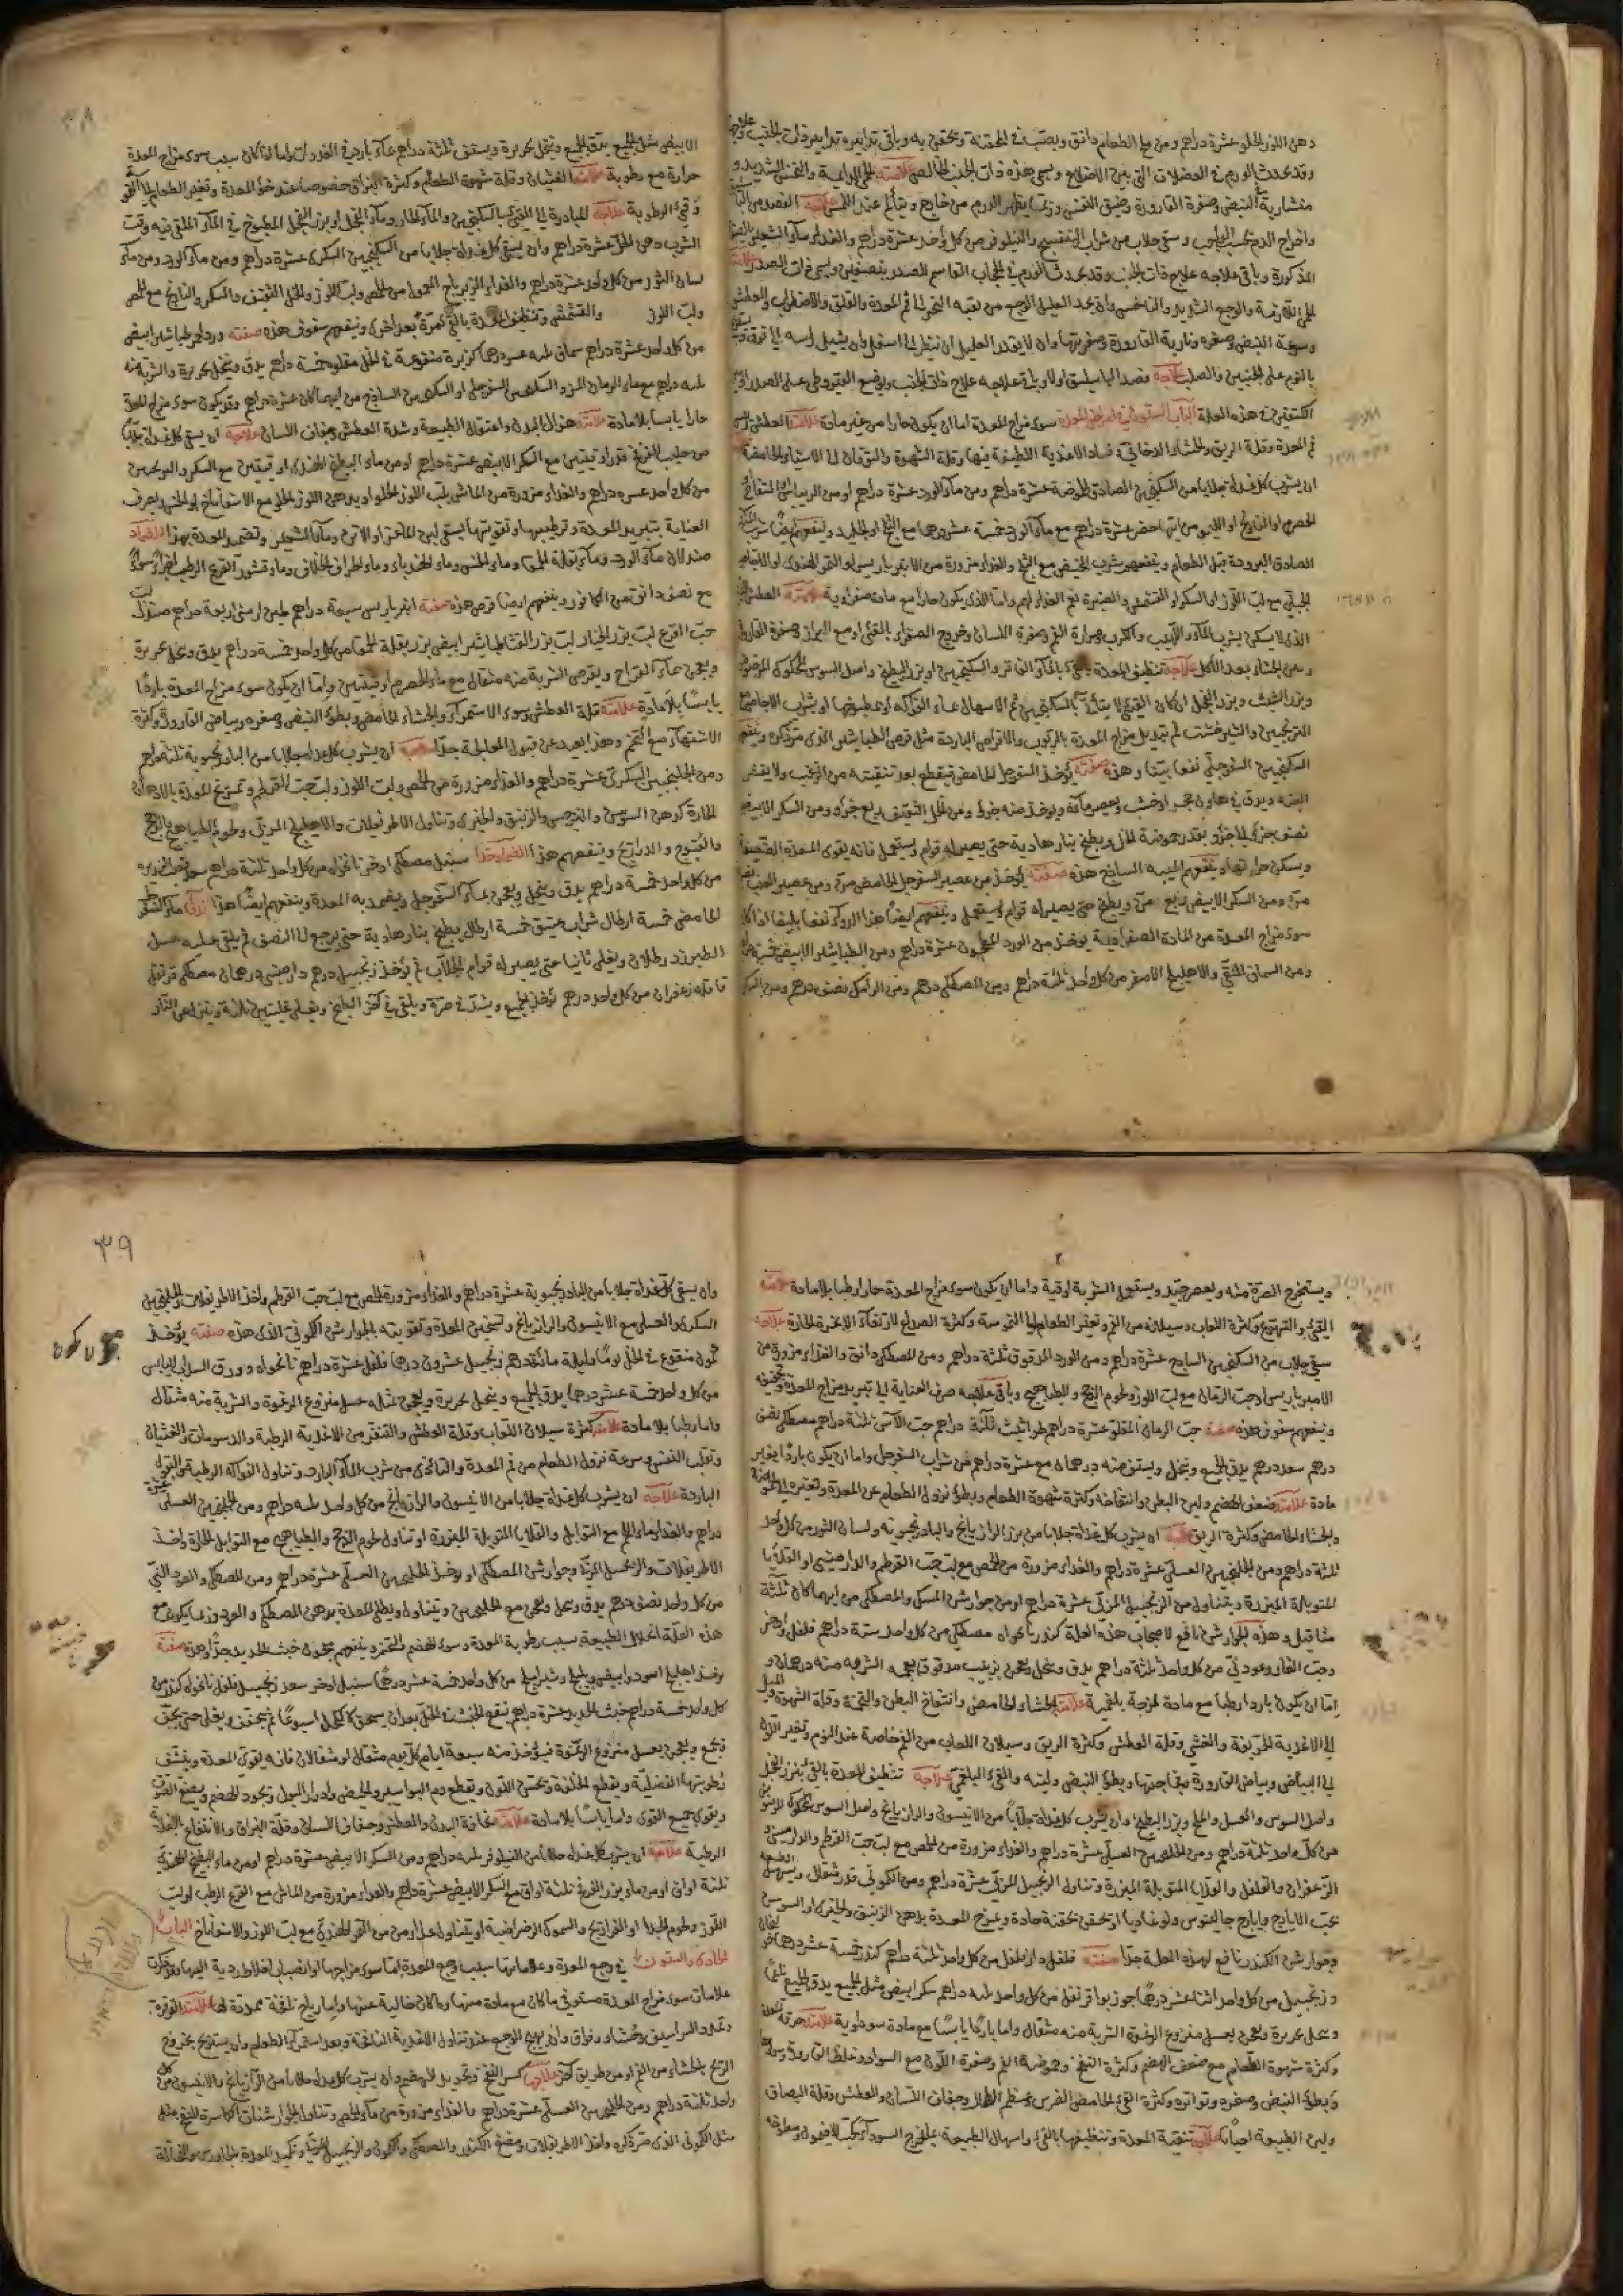 ودهن اللوز الحلو عشرة دراهم ومن ملح الطعام دانق ويصب في المحقنة ويحتقن به وباقي تدابيره تدابير ذات الجنب
وقد يحدث الورم في العضلات التي بين الاضلاع ويسمى هذه ذات الجنب الخالص علامته الحمى الدايمة والنخس الشديد و
منشارية النبض وصفرة القارورة وضيق النفس وربما يظهر الورم من خارج ويتألم عند اللمس علاجه الفصد من
واخراج الدم بحسب الواجب وسقي جلاب من شراب البنفسج والنيلوفر من كل واحد عشرة دراهم والغذاء ماء الشعير
المذكورة وباقي علاجه علاج ذات الجنب وقد يحدث الورم في الحجاب القاسم للصدر بنصفين ويسمى ذات الصدر
الحمى اللازمة والوجع الشديد والناخس وان يجد العليل الوجع من نقبة النحر الى فم المعدة والقلق والاضطراب والعطش
وسرعة النبض وصغره ونارية القارورة وصفرتها وان لا يقدر العليل ان ينظر الى اسفل وان يشيل راسه الى فوق
بالنوم على الجنبين والصلب علاجه فصد الباسليق اولا وباقي علاجه علاج ذات الجنب ويوضع القيروطي على الصدر
الكتفين في هذه العلة الباب الستون في امراض المعدة سوء مزاج المعدة اما ان يكون حارا من غير مادة علامته العطش
في المعدة وقلة الريق والجشاء الدخاني وفساد الاغذية اللطيفة فيها وقلة الشهوة والتوقان الى الاشياء الحامضة
ان يشرب كل غداة جلابا من السكنجبين الصادق الحموضة عشرة دراهم ومن ماء الورد عشرة دراهم او من
الحصرم او النارنج او الليمو من ايها حضر عشرة دراهم مع ماء الورد خمسة عشر درهما مع الثلج او الجليد وينفعهم ايضا شرب
الصادق البرودة قبل الطعام وينفعهم شرب المخيض مع الثلج والغذاء مزورة من الانبرباريس او التمر الهندي او الاجاص
مع لب اللوز او السكر او القشمش والصبرة نعم الغذاء لهم واما الذي يكون حارا مع مادة صفراوية علامته العطش
الذي لا يسكن بشرب الماء واللهيب والكرب ومرارة الفم وصفرة اللسان وخروج الصفراء بالقيء او مع البراز وصفرة القارورة
وسن الجشاء بعد الاكل علاجه تنظيف المعدة بالقيء بالماء الفاتر والسكنجبين او بزر البطيخ واصل السوس المحكوك المرضوض
وبزر الشبث وبزر الفجل ان كان القيء لا يتأتى بالسكنجبين ثم الاسهال بماء الفواكه او بمطبوخها او بشراب الاجاص
الترنجبين والشيرخشت ثم تبديل مزاج المعدة بالربوب والاقراص الباردة مثل قرص الطباشير الذي مر ذكره وينفع
السكنجبين السفرجلي نفعا بينا وهذه صفته يؤخذ السفرجل الحامض فيقطع بعد تنقيته من الزغب ولا يقشر
البتة ويدق في هاون حجر او خشب ويعصر ماؤه ويؤخذ منه جزء ومن الخل الثقيف ربع جزء ومن السكر الابيض
نصف جزء الى جزء بقدر حموضة الخل ويطبخ بنار هادية حتى يصير له قوام ويستعمل فانه يقوي المعدة الضعيفة
ويسكن حرارتها وينفعهم الميبه الساذج هذه صفته يؤخذ من عصير السفرجل الحامض من ومن عصير العنب
من ومن السكر الابيض ربع من ويطبخ حتى يصير له قوام ويستعمل وينفعهم ايضا هذا الدواء نفعا بليغا اذا كان
سوء مزاج المعدة من المادة الصفراوية يؤخذ من الورد المطحون عشرة دراهم ومن الطباشير الابيض خمسة
ومن السماق المنقى والاهليلج الاصفر من كل واحد ثلثة دراهم ومن المصطكى درهم ومن الرامك نصف درهم ومن السكر
٣٨
الابيض مثل الجميع يدق الجميع وينخل بحريرة ويستف ثلثة دراهم بماء بارد في الغدوات واما اذا كان سبب سوء مزاج المعدة
حرارة مع رطوبة علامته الغثيان وقلة شهوة الطعام وكثرة البزاق خصوصا عند خلو المعدة وتغير الطعام
وقيء الرطوبة علاجه المبادرة الى القيء بالسكنجبين والماء الحار وماء الفجل او بزر الفجل المطبوخ في الماء الملقى فيه وقت
الشرب دهن الخل عشرة دراهم وان يسقى كل غداة جلابا من السكنجبين السكري عشرة دراهم ومن ماء الورد ومن ماء
لسان الثور من كل واحد عشرة دراهم والغذاء الزيرباج المعمول من الحمص ولب اللوز والخل الثقيف والسكر والنارنج مع الحمص
ولب اللوز والقشمش وتنظيف المعدة بالقيء مرة بعد اخرى وينفعهم سفوف هذه صفته ورد احمر طباشير ابيض
من كل واحد عشرة دراهم سماق ثلثة عشر درهما كزبرة منقوعة في الخل مقلوة خمسة دراهم يدق وينخل بحريرة والشربة منه
ثلثة دراهم مع ماء الرمان المز والسكنجبين السفرجلي او السكنجبين الساذج من ايهما كان عشرة دراهم وقد يكون سوء مزاج المعدة
حارا يابسا بلا مادة علامته هزال البدن واعتقال الطبيعة وشدة العطش وجفاف اللسان علاجه ان يسقى كل غداة جلابا
من حليب البزر قدر اوقيتين مع السكر الابيض عشرة دراهم او من ماء البطيخ الهندي اوقيتين مع السكر والترنجبين
من كل واحد عشرة دراهم والغذاء مزورة من الماش بلب اللوز الحلو او بدهن اللوز الحلو مع الاسفاناخ او الخس ويصرف
العناية بتبريد المعدة وترطيبها وتقويتها بسقي لبن الماعز او الاتن وماء الشعير وتضميد المعدة بهذا الضماد
صندلان ماء الورد وماء بقلة الحمقاء وماء الخس وماء الهندباء وماء اطراف الخلاف وماء قشور القرع الرطب اجزاء سواء
مع نصف دانق من الكافور وينفعهم ايضا قرص هذه صفته انبرباريس سبعة دراهم طين ارمني اربعة دراهم صندل لب
حب القرع لب بزر الخيار لب بزر القثاء طباشير ابيض بزر بقلة الحمقاء من كل واحد خمسة دراهم يدق وينخل بحريرة
ويعجن بماء التفاح ويقرص الشربة منه مثقال مع ماء الحصرم اوقيتين واما ان يكون سوء مزاج المعدة باردا
يابسا بلا مادة علامته قلة العطش وسوء الاستمراء والجشاء الحامض وبطؤ النبض وصغره وبياض القارورة وكثرة
الاشتهاء مع التخم وهذا يبعد عن قبول المعالجة جدا علاجه ان يشرب كل غداة جلابا من البادرنجبوية ثلثة دراهم
ومن الجلنجبين السكري عشرة دراهم والغذاء مزورة من الحمص ولب اللوز ولب حب القرطم وتمريخ المعدة بالادهان
الحارة كدهن السوسن والنرجس والزنبق والخيري وتناول الاطريفلات والاهليلج المربى ولحوم الطياهيج والدجج
والقبوج والدراريج وينفعهم هذا الضماد جدا سنبل مصطكى اذخر نانخواه من كل واحد ثلثة دراهم
من كل واحد خمسة دراهم يدق وينخل ويعجن بماء السفرجل ويضمد به المعدة وينفعهم ايضا هذا الدواء ماء السفرجل
الحامض خمسة ارطال شراب عتيق خمسة ارطال يطبخ بنار هادية حتى يرجع الى النصف ثم يلقى عليه عسل
الطبرزد رطلان ويغلى ثانيا حتى يصير له قوام الجلاب ثم يؤخذ زنجبيل درهم دارصيني درهمان مصطكى قرنفل
قاقلة زعفران من كل واحد درهم يؤخذ الجميع ويشد في صرة ويلقى في آخر الطبخ ويغلى غليتين ثلثة وينزل عن النار
ويستخرج الصرة منه ويعصر جيد ويستعمل الشربة اوقية واما ان يكون سوء مزاج المعدة حارا رطبا بلا مادة علامته
القيء والتهوع وكثرة اللعاب وسيلانه من الفم وتغير الطعام الى الحموضة وكثرة الصداع لارتفاع الابخرة الحارة علاجه
سقي جلاب من السكنجبين الساذج عشرة دراهم ومن الورد المدقوق ثلثة دراهم ومن المصطكى دانق والغذاء مزورة من
الامبرباريس او حب الرمان مع لب اللوز ولحوم الدجج والطياهيج وباقي علاجه صرف العناية الى تبريد مزاج المعدة وتجفيفه
وينفعهم سفوف هذه صفته حب الرمان المقلو عشرة دراهم طراثيث ثلثة دراهم حب الآس ثلثة دراهم مصطكى نصف
درهم سعد درهم يدق الجميع وينخل ويستف منه درهمان مع عشرة دراهم من شراب السفرجل واما ان يكون باردا بغير
مادة علامته ضعف الهضم ولين البطن وانتفاخه وكثرة شهوة الطعام وبطؤ نزول الطعام عن المعدة وتغيره الى الحموضة
والجشاء الحامض وكثرة الريق علاجه ان يشرب كل غداة جلابا من بزر الرازيانج والبادرنجبويه ولسان الثور من كل واحد
ثلثة دراهم ومن الجلنجبين العسلي عشرة دراهم والغذاء مزورة من الحمص مع لب حب القرطم والدارصيني او القلايا
المتوبلة المبزرة ويتناول من الزنجبيل المربى عشرة دراهم او من جوارش المسك والمصطكى من ايهما كان ثلثة
مثاقيل وهذه الجوارش نافع لاصحاب هذه العلة كندر نانخواه مصطكى من كل واحد ستة دراهم فلفل اذخر
وحب الغار وعود ني من كل واحد ثلثة دراهم يدق وينخل ويعجن بزبيب مدقوق بعجمه الشربة منه درهمان و
اما ان يكون باردا رطبا مع مادة لزجة بلغمية علامته الجشاء الحامض وانتفاخ البطن والتخمة وقلة الشهوة والميل
الى الاغذية الحريفة والغشي وقلة العطش وكثرة الريق وسيلان اللعاب من الفم خاصة عند النوم وتغير اللون
الى البياض وبياض القارورة وفجاجتها وبطؤ النبض ولينه والقيء البلغمي علاجه تنظيف المعدة بالقيء ببزر الفجل
واصل السوس والعسل والملح وبزر البطيخ وان يشرب كل غداة جلابا من الانيسون والرازيانج واصل السوس المحكوك المرضوض
من كل واحد ثلثة دراهم ومن الجلنجبين العسلي عشرة دراهم والغذاء مزورة من الحمص مع لب حب القرطم والدارصيني و
الزعفران والفلفل والقلايا المتوبلة المبزرة وتناول الزنجبيل المربى عشرة دراهم ومن الكموني قدر مثقال ويسهل الطبيعة
بحب الايارج وايارج جالينوس ولوغاديا او يحقن بحقنة حادة ويمرخ المعدة بدهن الزنبق والخيري او السوسن
وجوارش الكندر نافع لهذه العلة جدا صفته فلفل دارفلفل من كل واحد ثلثة دراهم كندر خمسة عشر درهما
وزنجبيل من كل واحد اثنا عشر درهما جوزبوا قرنفل من كل واحد ثلثة دراهم سكر ابيض مثل الجميع يدق الجميع
وينخل بحريرة ويعجن بعسل منزوع الرغوة الشربة منه مثقال واما باردا يابسا مع مادة سوداوية علامته حرقة
وكثرة شهوة الطعام مع ضعف الهضم وكثرة النفخ وحموضة الفم وصفرة اللون مع السواد وغلظ القارورة
وبطؤ النبض وصغره وتواتره وكثرة القيء الحامض المضرس وعظم الطحال وجفاف اللسان والعطش وقلة البصاق
ولين الطبيعة احيانا علاجه تنقية المعدة وتنظيفها بالقيء واسهال الطبيعة بما يخرج السوداء كحب الافتيمون ومطبوخه
٣٩
وان يسقى كل غداة جلابا من البادرنجبوية عشرة دراهم والغذاء مزورة الحمص مع لب حب القرطم واخذ الاطريفلات والجلنجبين
السكري والعسلي مع الانيسون والرازيانج وتسخين المعدة وتقويته بالجوارش الكموني الذي هذه صفته يؤخذ
كمون منقوع في الخل يوما وليلة مائة درهم زنجبيل عشرون درهما فلفل عشرة دراهم نانخواه وورق السداب اليابس
من كل واحد خمسة عشر درهما يدق الجميع وينخل بحريرة ويعجن بمثله عسل منزوع الرغوة والشربة منه مثقال
واما رطبا بلا مادة علامته كثرة سيلان اللعاب وقلة العطش والتنفر من الاغذية الرطبة والدسومات والغثيان
وتقلب النفس وسرعة نزول الطعام من فم المعدة والتأذي من شرب الماء البارد وتناول الفواكه الرطبة والبقول
الباردة علاجه ان يشرب كل غداة جلابا من الانيسون والرازيانج من كل واحد ثلثة دراهم ومن الجلنجبين العسلي عشرة
دراهم والغذاء ماء الحمص مع التوابل والقلايا المتوبلة المبزرة او تناول لحوم الدجج والطياهيج مع التوابل الحارة واخذ
الاطريفلات والزنجبيل المربا وجوارش المصطكى او يؤخذ الجلنجبين العسلي عشرة دراهم ومن المصطكى والعود الني
من كل واحد نصف درهم يدق وينخل ويعجن مع الجلنجبين ويتناول ويطلى المعدة بدهن المصطكى والعود وربما يكون مع
هذه العلة انحلال الطبيعة بسبب رطوبة المعدة وسوء الهضم والتخم وينفعهم معجون خبث الحديد جدا وهذه صفته
يؤخذ اهليلج اسود وابيض وبليلج وشير املج من كل واحد خمسة عشر درهما سنبل اذخر سعد زنجبيل فلفل نانخواه كندر من
كل واحد خمسة دراهم خبث الحديد عشرة دراهم ينقع الخبث في الخل بعد ان يسحق كالكحل اسبوعا ثم يجفف ويقلى حتى يجف
يجمع ويعجن بعسل منزوع الرغوة فيؤخذ منه سبعة ايام كل يوم مثقال او مثقالان فانه يقوي المعدة وينشف
رطوبتها الفضلية ويقطع الخلفة ويحسن اللون ويقطع دم البواسير والحيض وادرار البول ويجود الهضم
ويقوي جميع القوى واما يابسا بلا مادة علامته نحافة البدن والعطش وجفاف اللسان وقلة البزاق والانتفاع بالاغذية
الرطبة علاجه ان يشرب كل غداة جلابا من النيلوفر ثلثة دراهم ومن السكر الابيض عشرة دراهم او من ماء البطيخ الهندي
ثلثة اواق او من ماء بزر البقلة ثلثة اواق مع السكر الابيض عشرة دراهم والغذاء مزورة من الماش مع القرع الرطب او لب
اللوز ولحوم الجداء او الفراريج والسموك الرضراضية او يتناول غذاء من التمر الهندي مع لب اللوز والاسفاناخ الباب
الحادي والستون في وجع المعدة وعلاماتها سبب وجع المعدة اما سوء مزاجها او انصباب اخلاط ردية اليها وقد ذكرت
علامات سوء مزاج المعدة مستوفى ما كان مع مادة منها وما كان خالية عنها واما رياح نافخة ممددة لها علامته القرقرة
وتمدد الشراسيف وجشاء وفواق وان يهيج الوجع عند تناول الاغذية النافخة وبعد استمراء الطعام وان يستريح بخروج
الريح بالجشاء من الفم او من طريق آخر علاجها كسر النفخ وتجويد الهضم وان يشرب كل غداة جلابا من الرازيانج والانيسون من كل
واحد ثلثة دراهم ومن الجلنجبين العسلي عشرة دراهم والغذاء مزورة من ماء الحمص وتناول الجوارشنات الكاسرة للنفخ
مثل الكموني الذي مر ذكره واخذ الاطريفلات ومضغ الكندر والمصطكى والكمون والزنجبيل المربا وتكميد المعدة بالجاورس والنخالة